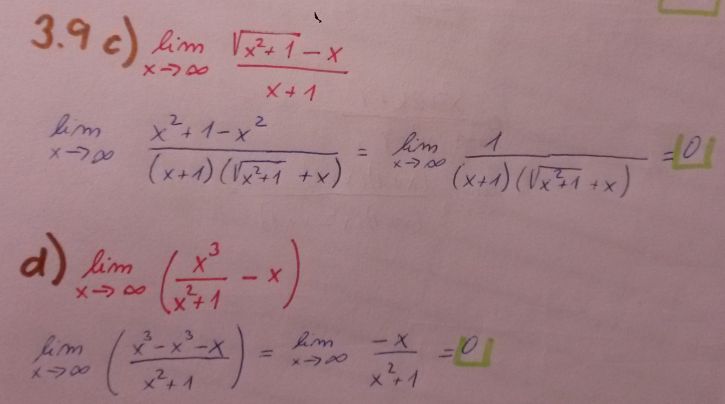 3.9 c) lim x→∞ (√(x²+1) - x)/(x+1)
lim x→∞ (x²+1-x²)/((x+1)(√(x²+1) + x)) = lim x→∞ 1/((x+1)(√(x²+1) + x)) = 0
d) lim x→∞ (x³/(x²+1) - x)
lim x→∞ ((x³-x³-x)/(x²+1)) = lim x→∞ -x/(x²+1) = 0